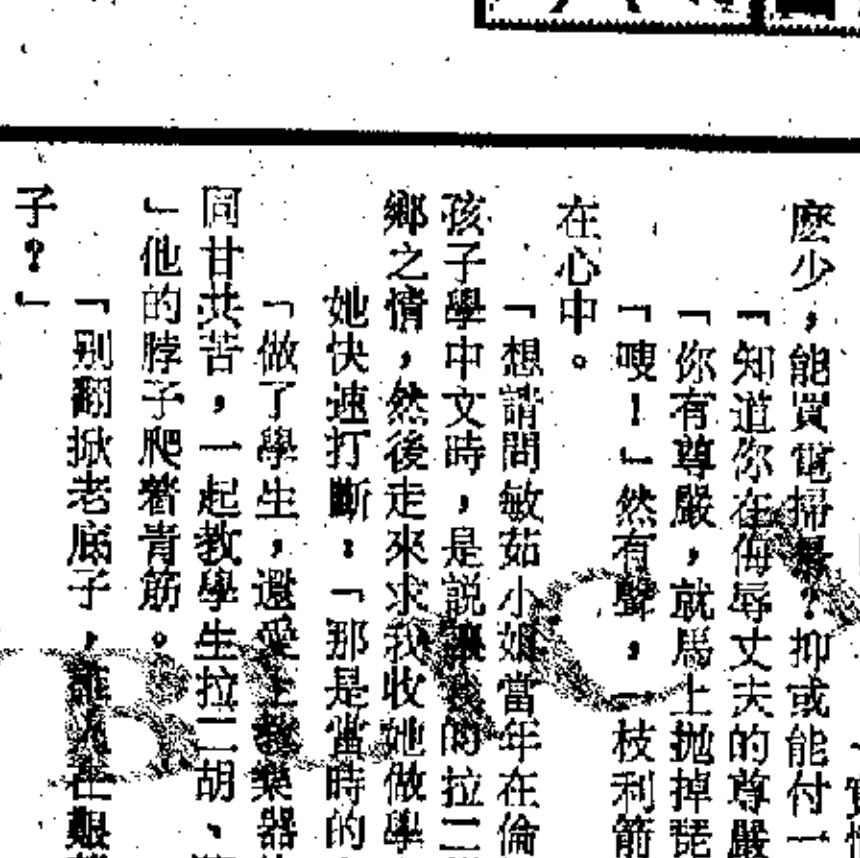 麼少，能買電掃帚？抑或能付一
「知道你在侮辱丈夫的尊嚴
「你有尊嚴，就馬上拋掉琵
「嗖！」然有聲，一枝利箭
在心中。
「想請問敏茹小姐當年在倫
孩子學中文時，是説讓我的拉二
鄉之情，然後走來求我收她做學
她快速打斷：「那是當時的
「做了學生，還愛上教樂器
同甘共苦，一起教學生拉二胡、
」他的脖子爬着青筋。
「别翻掀老底子，誰人在艱
子？」